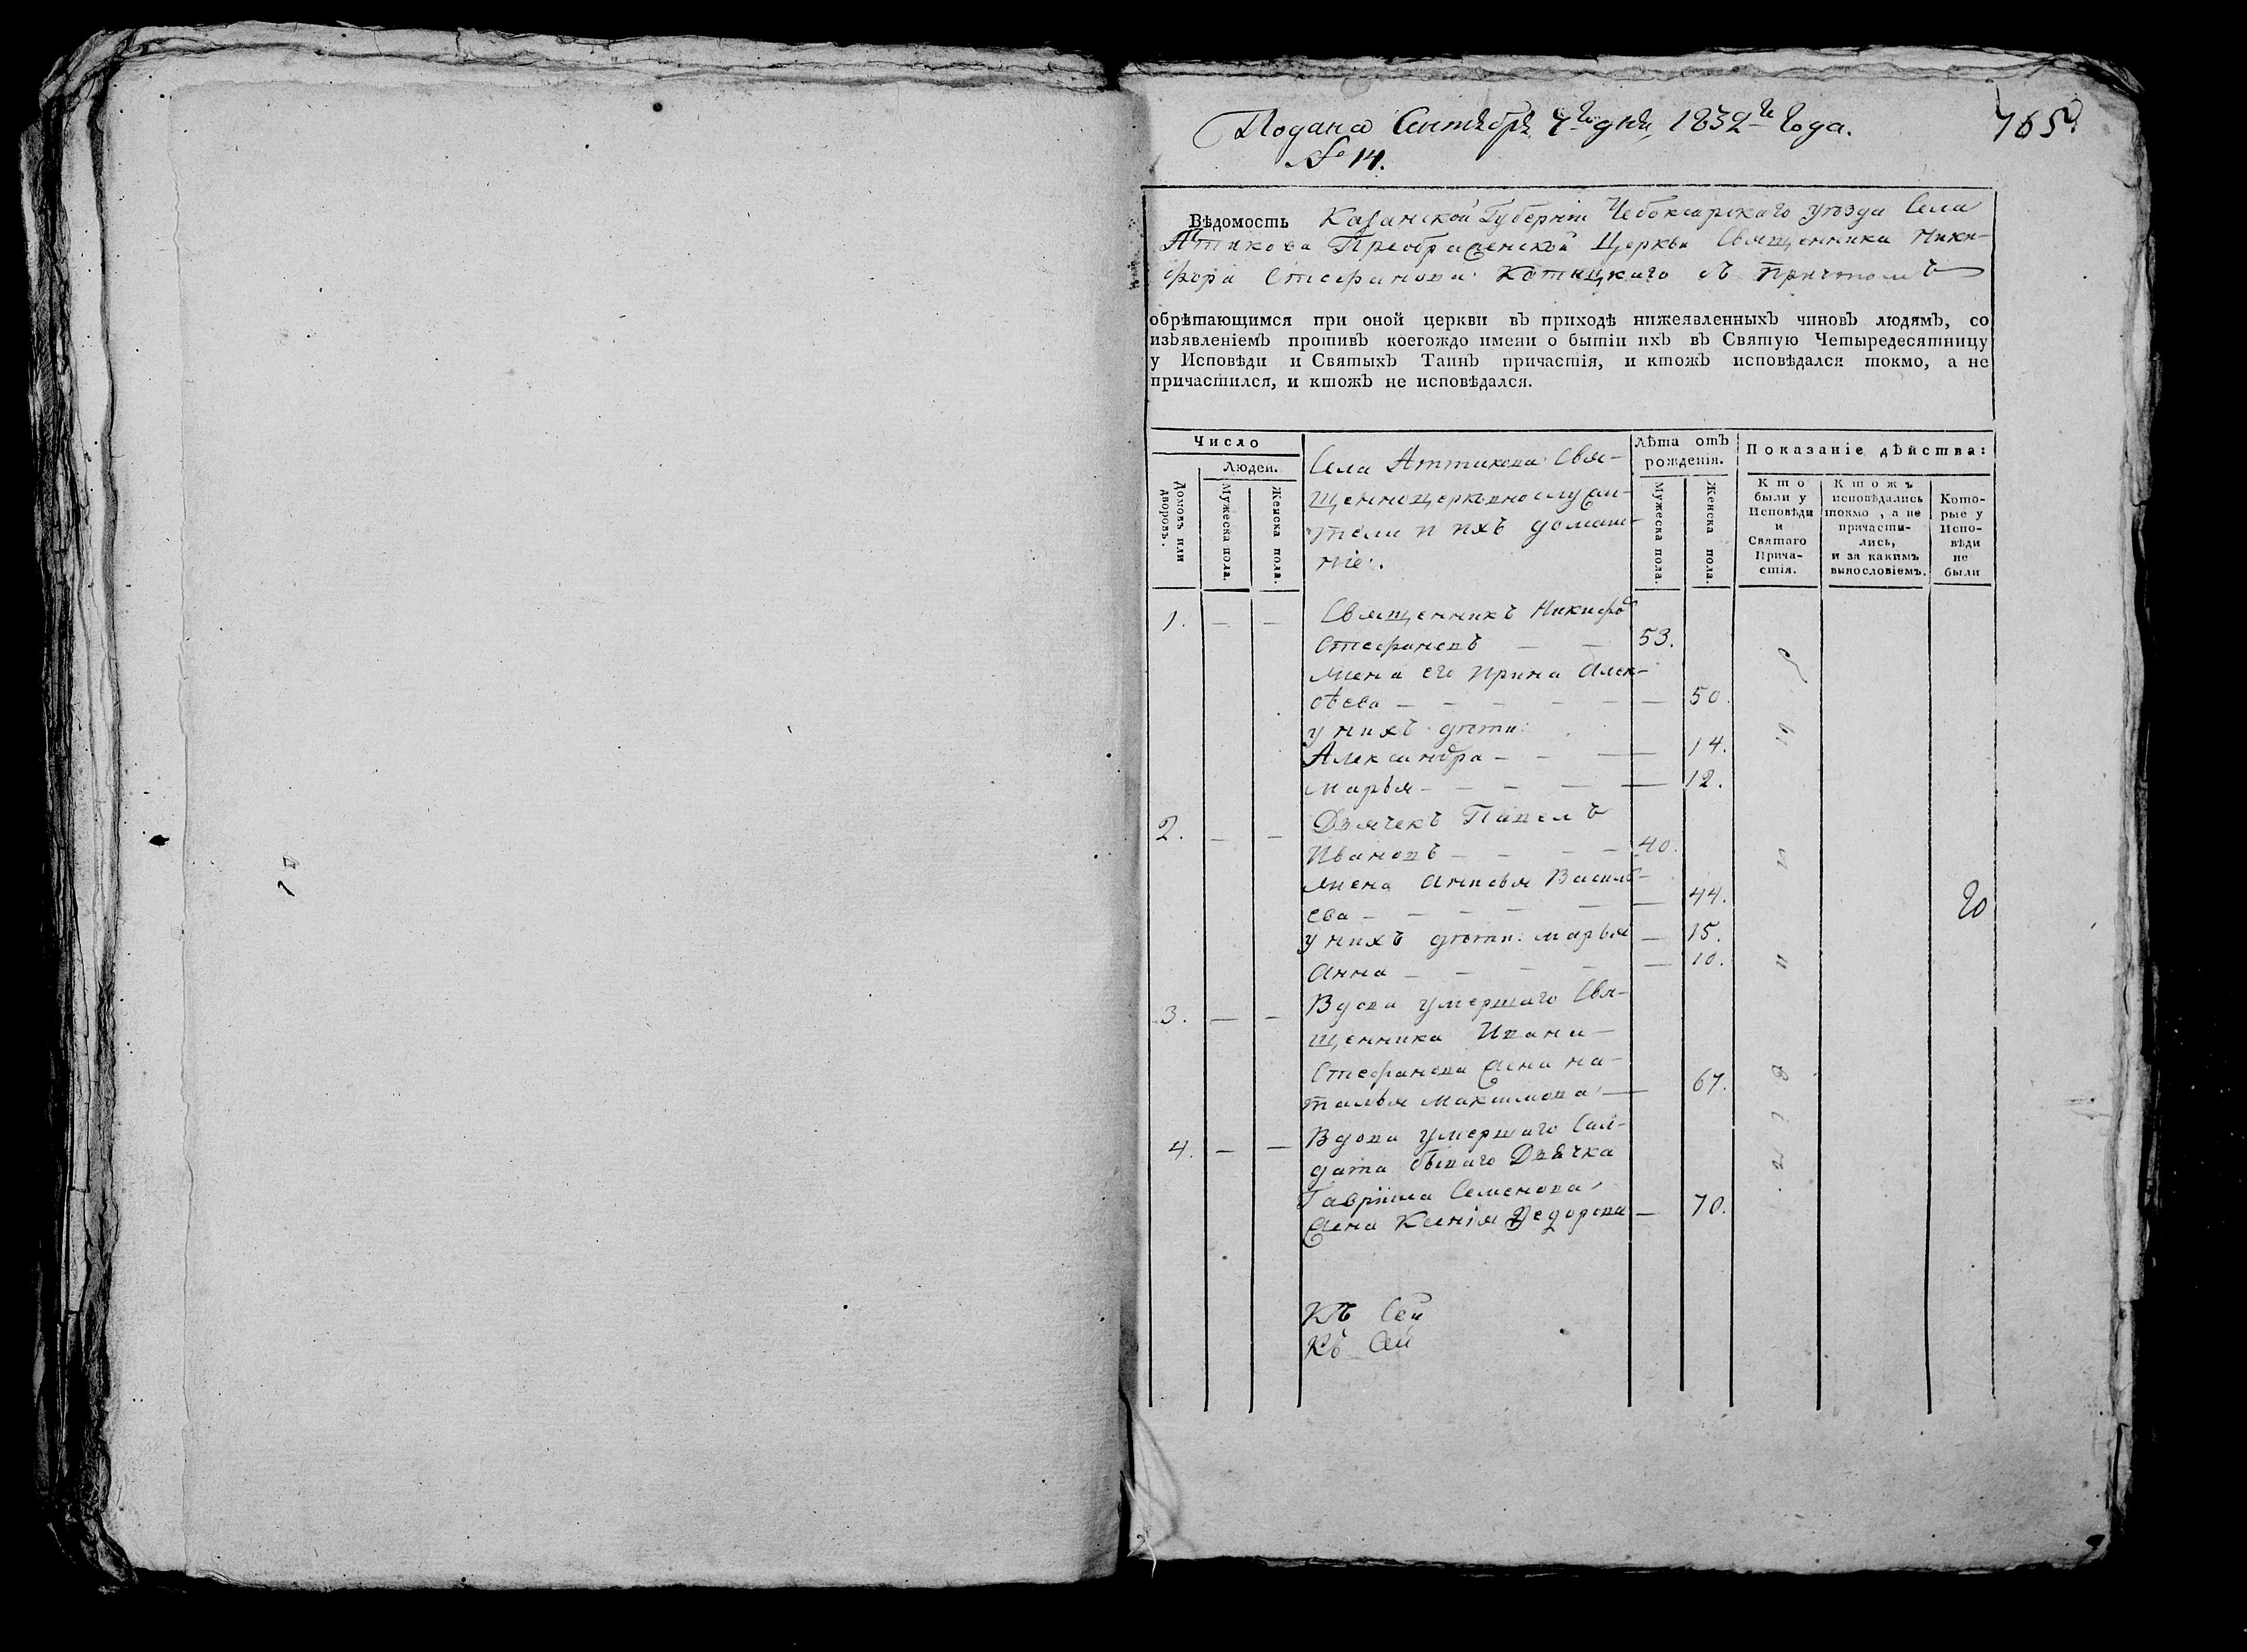 Подана Сентября 7го дня, 1832го Года.
765
№ 14.
Вѣдомость Казанской Губерніи Чебоксарскаго уѣзда Села
Аттикова Преображенской Церкви Священника Ники-
фора Стефанова Котицкаго съ Причтомъ
обрѣтающимся при оной церкви въ приходѣ нижеявленныхъ чиновъ людямъ, со
изъявленіемъ противъ коегождо имени о бытіи ихъ въ Святую Четыредесятницу
у Исповѣди и Святыхъ Таинъ причастія, и ктожъ исповѣдался токмо, а не
причастился, и ктожъ не исповѣдался.
Число
Людей.
Домовъ или дворовъ.
Мужеска пола.
Женска пола.
Села Аттикова Свя-
щенноцерковнослужи-
тели и ихъ домаш-
ніе.
Лѣта отъ рожденія.
Мужеска пола.
Женска пола.
Показаніе дѣйства:
Кто были у Исповѣди и Святаго Прича-стія.
Ктожъ исповѣдались токмо, а не причасти-лись, и за какимъ винословіемъ.
Кото-рые у Испо-вѣди не были
1. — — Священникъ Никифо
Стефановъ — — 53.
Жена его Ирина Алек-
сѣева — — — — — — 50.
у нихъ дѣти:
Александра — — — 14.
Марья — — — — — 12.
2. — — Дьячекъ Павелъ
Ивановъ — — — — 40.
Жена Анисья Василь-
ева — — — — — — 44.
у нихъ дѣти: Марья — 15.
Анна — — — — — 10.
3. — — Вдова умершаго Свя-
щенника Ивана
Стефанова жена На-
талья Максимова — 67.
4. — — Вдова умершаго Сол-
дата бывшаго Дьячка
Гавріила Семенова
жена Ксенія Ѳедорова — 70.
Къ Сей
Къ Сей